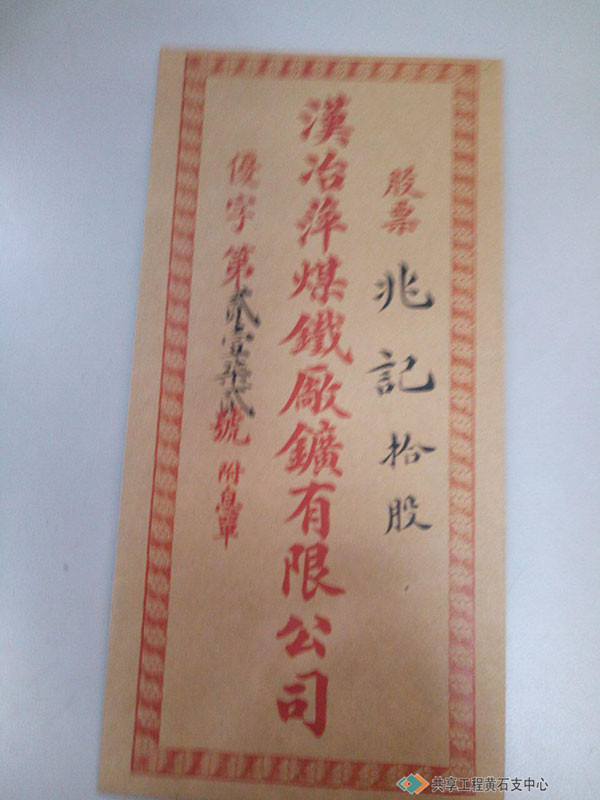 股票 兆記 拾股
漢冶萍煤鐵廠鑛有限公司
優字第貳壹柒貳號 附息單
共享工程黄石支中心